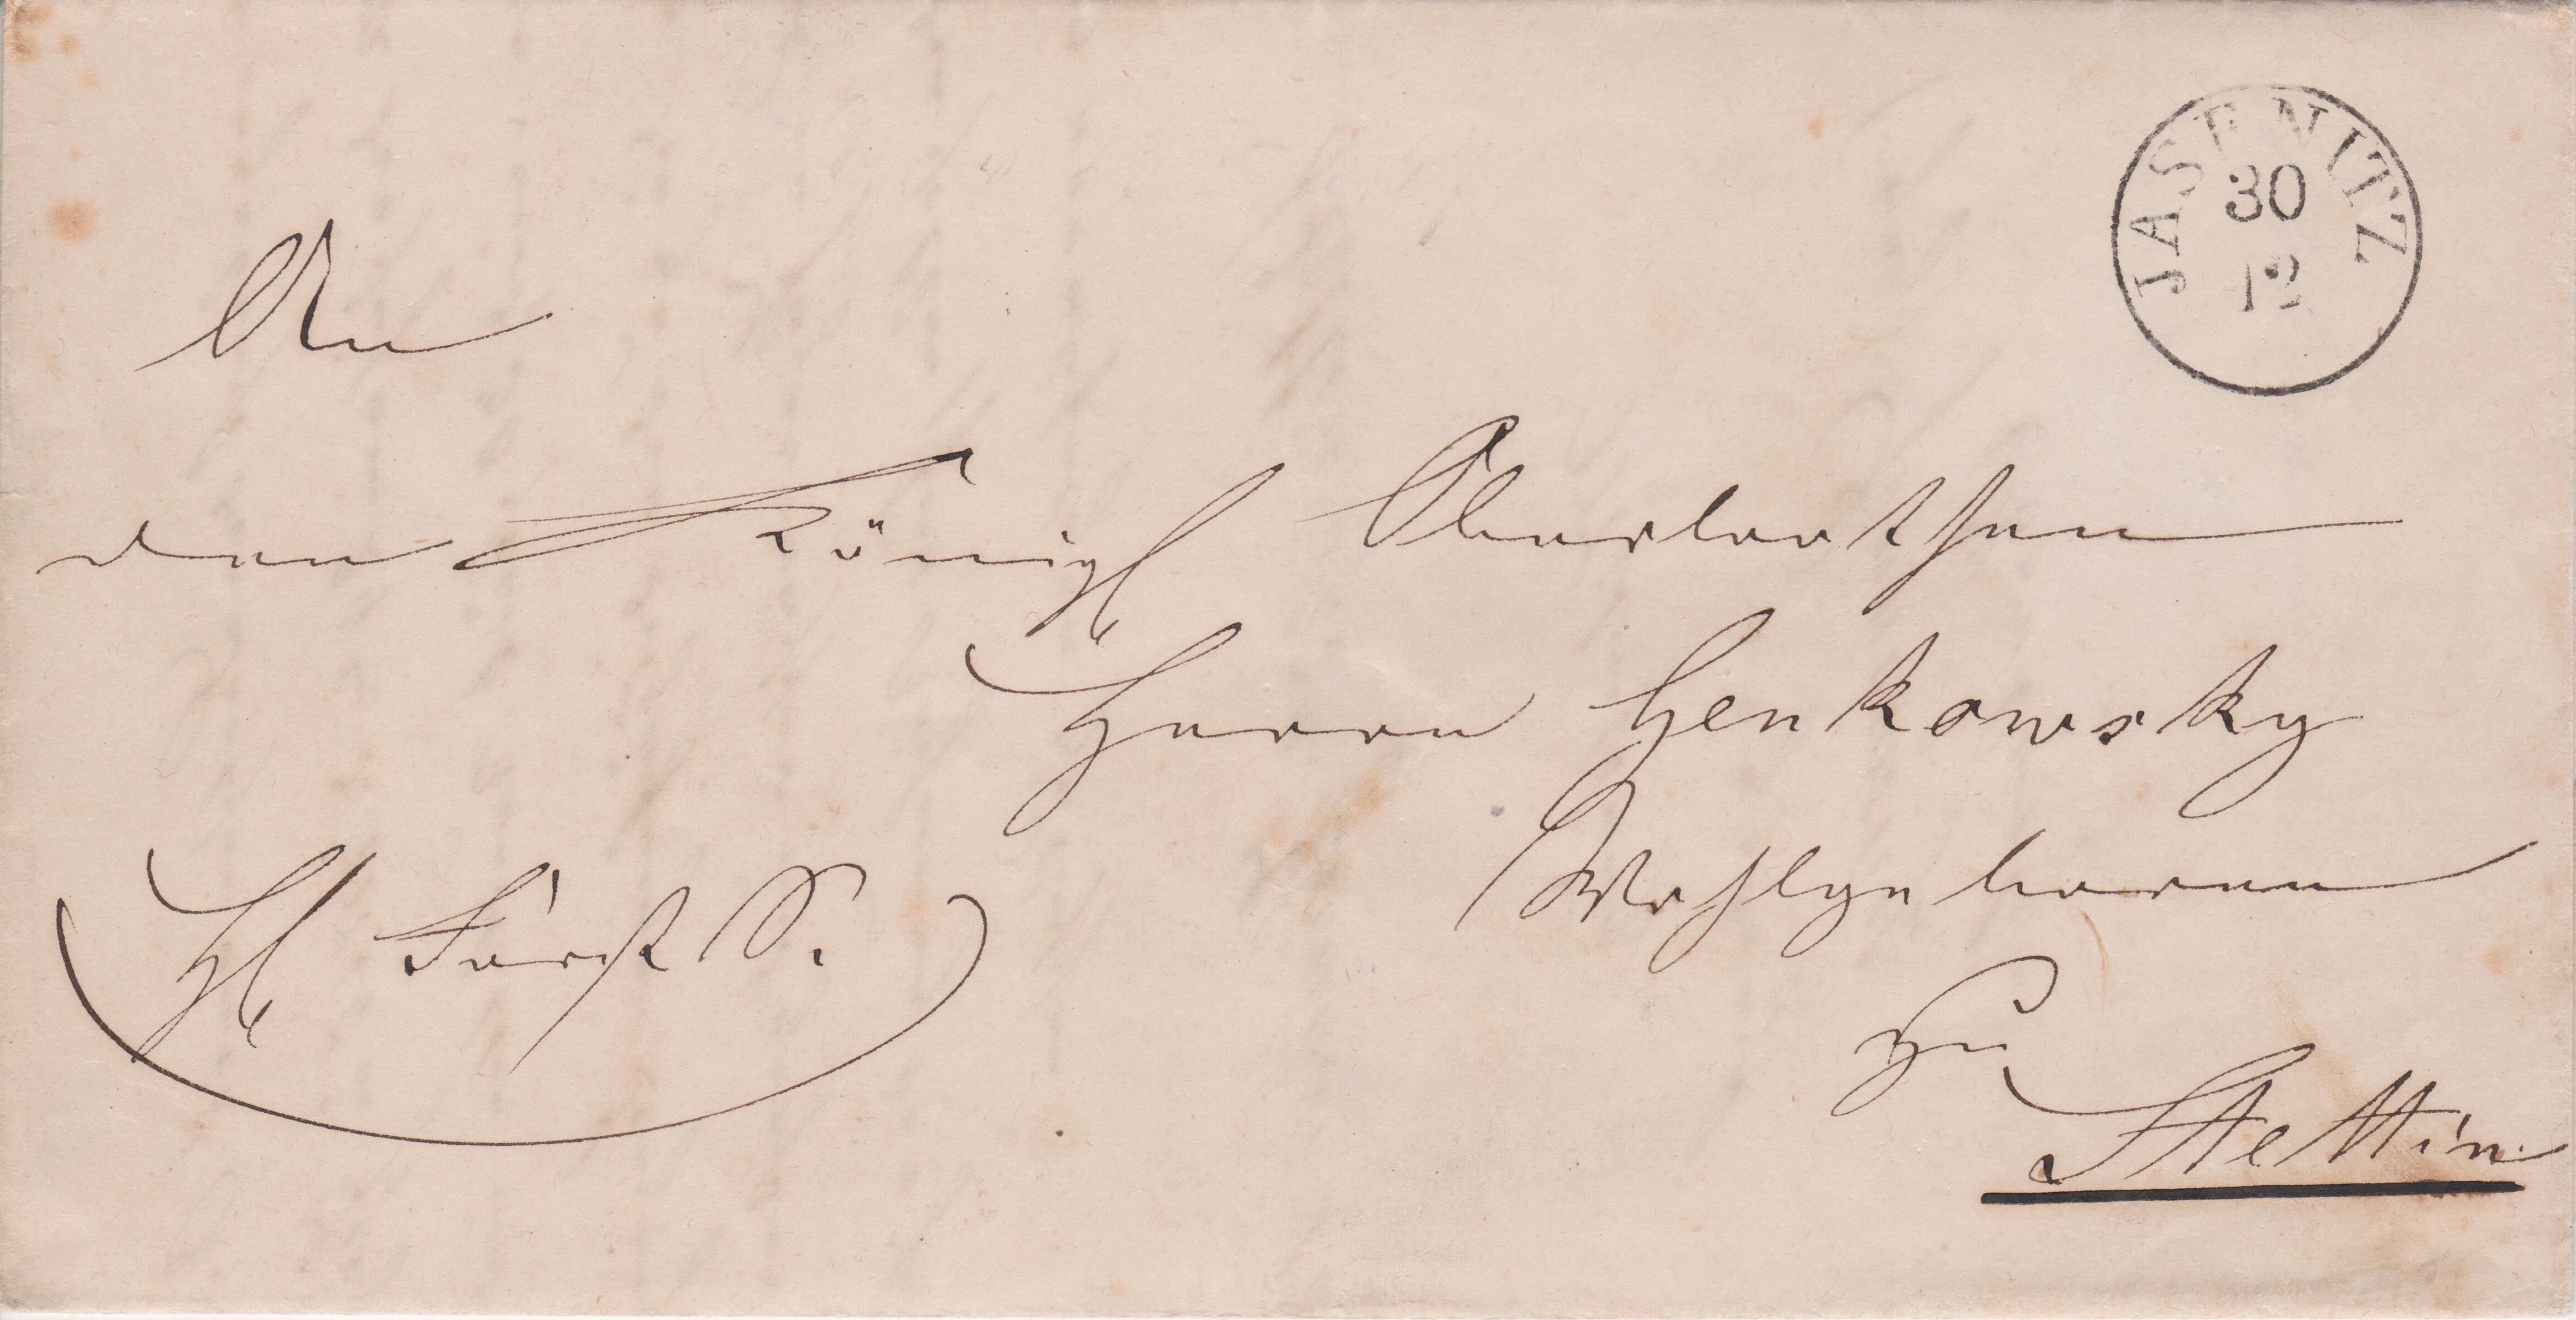 JASENITZ
30
12
An
den Königl Oberlootsen
Herrn Henkowsky
Wohlgeboren
zu
Stettin.